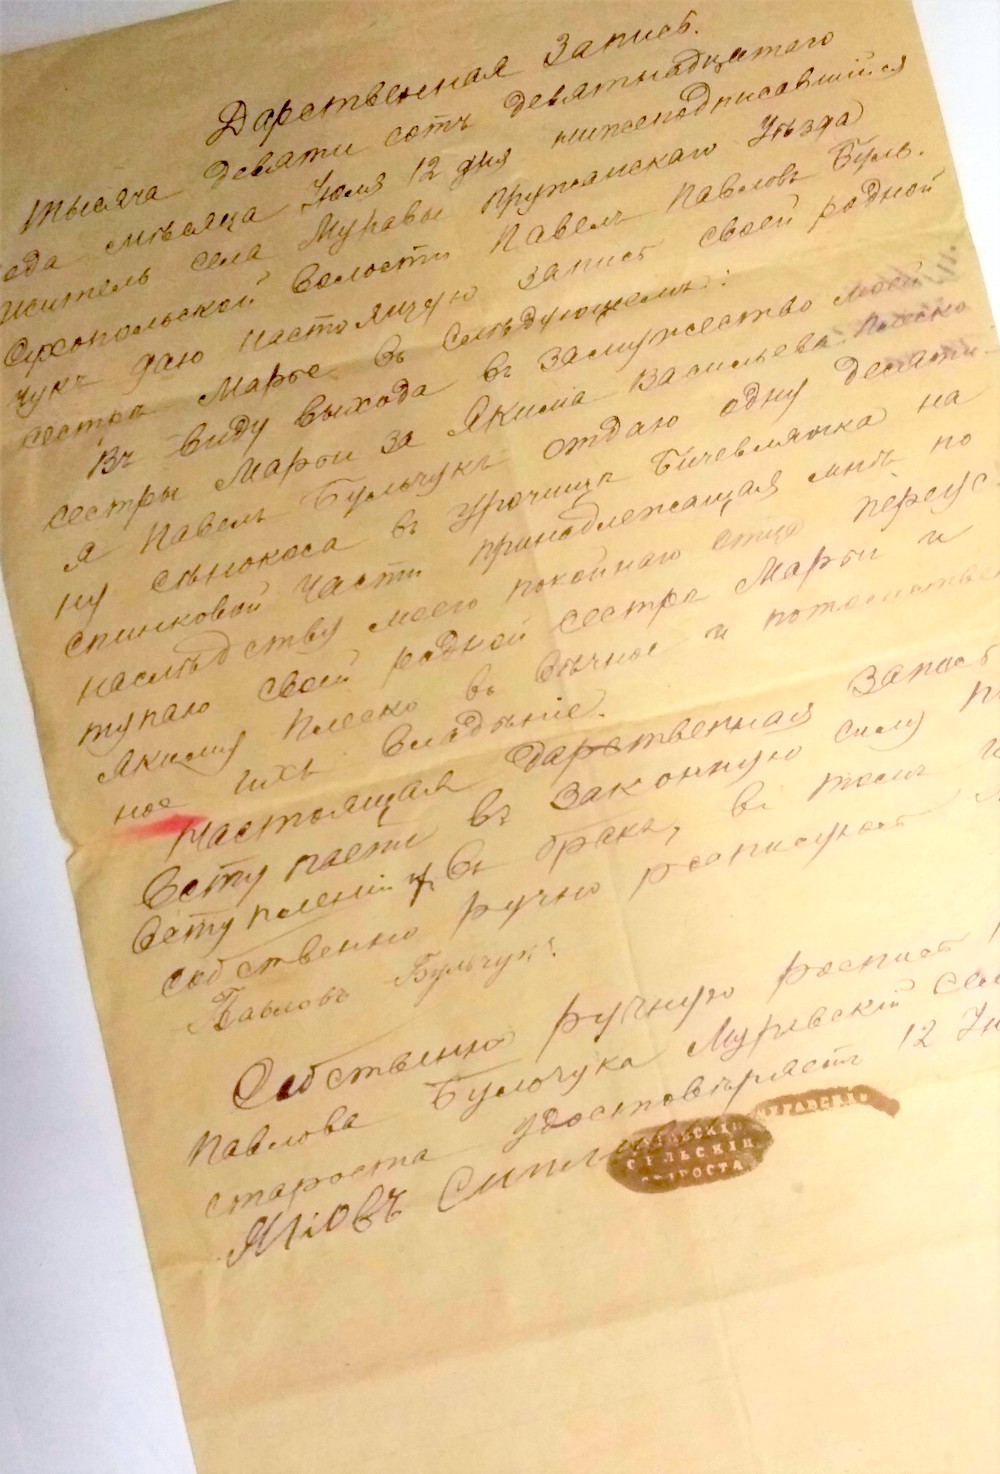 Дарственная Запись.
Тысяча девяти сотъ девятнадцатаго
ода мѣсяца Іюля 12 дня нижеподписавшійся
житель села Муравы Пружанскаго Уѣзда
Сухопольской Волости Павелъ Павловъ Буль-
чукъ даю настоящую запись своей родной
сестрѣ Марье въ Слѣдующемъ:
Въ виду выхода въ замужество моей
сестры Марьи за Якима Васильева Плеско
я Павелъ Бульчукъ отдаю одну десяти-
ну сѣнокоса въ Урочищѣ Бичевлянка на
спинковой Части принадлежащая мнѣ по
наслѣдству моего покойнаго отца переус-
тупаю своей родной сестрѣ Марьи и
Якиму Плеско въ вѣчное и потомствен
ное ихъ владѣніе.
Настоящая дарственная Запись
Вступаетъ въ Законную силу п
Вступленіи въ бракъ, въ томъ и
собственно ручно росписуюсь
Павловъ Бульчукъ.
Собственно ручную роспись
Павлова Бульчука Муравскій Сел
староста удостовѣряетъ 12 Ію
Яковъ
МУРАВСКІЙ
СЕЛЬСКІЙ
СТАРОСТА
МУРАВСКІЙ